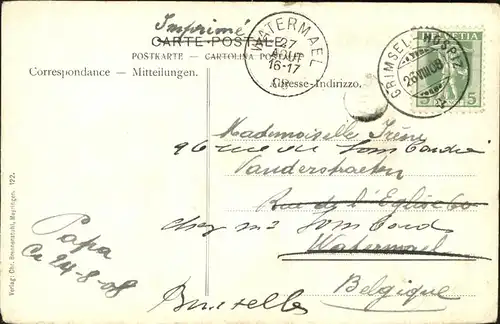 Imprimé
CARTE POSTALE
POSTKARTE — CARTOLINA POSTALE
Correspondance — Mitteilungen.
Adresse-Indirizzo.
WATERMAEL
27
AOUT
16-17
GRIMSEL HOSPIZ
26 VIII 08
HELVETIA
5 5
Mademoiselle Irène
96 rue du Lombardie
Vanderstraeten
Rue de l'Eglise 60
chez Lombard
Watermael
Belgique
Bruxelles
Papa
Ce 24-8-08
Verlag: Chr. Brennenstuhl, Meyringen. 122.